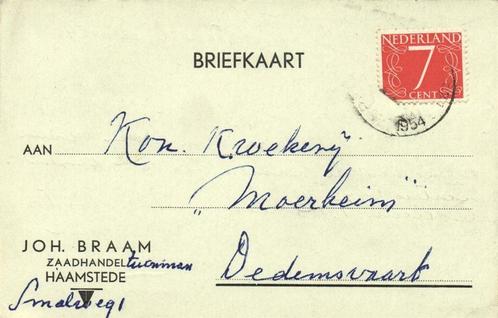 NEDERLAND
7
CENT
BRIEFKAART
1954
AAN Kon. Kwekerij
"Moerheim"
JOH. BRAAM
ZAADHANDEL tuinman
HAAMSTEDE
Dedemsvaart
Smalweg 1